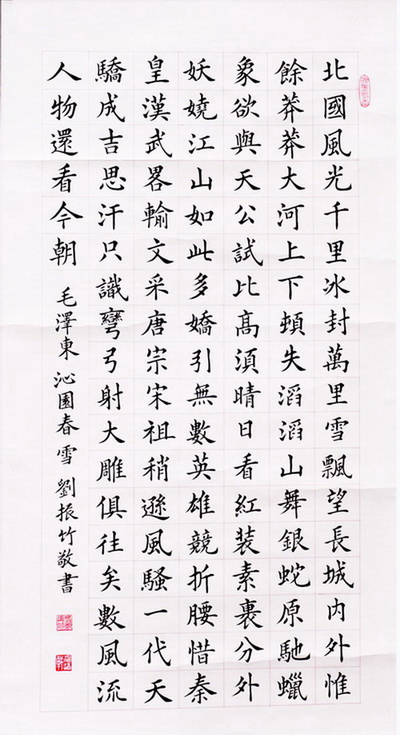 北國風光千里冰封萬里雪飄望長城內外惟
餘莽莽大河上下頓失滔滔山舞銀蛇原馳蠟
象欲與天公試比高須晴日看紅裝素裹分外
妖嬈江山如此多嬌引無數英雄競折腰惜秦
皇漢武畧輸文采唐宗宋祖稍遜風騷一代天
驕成吉思汗只識彎弓射大雕俱往矣數風流
人物還看今朝
毛澤東沁園春雪劉振竹敬書